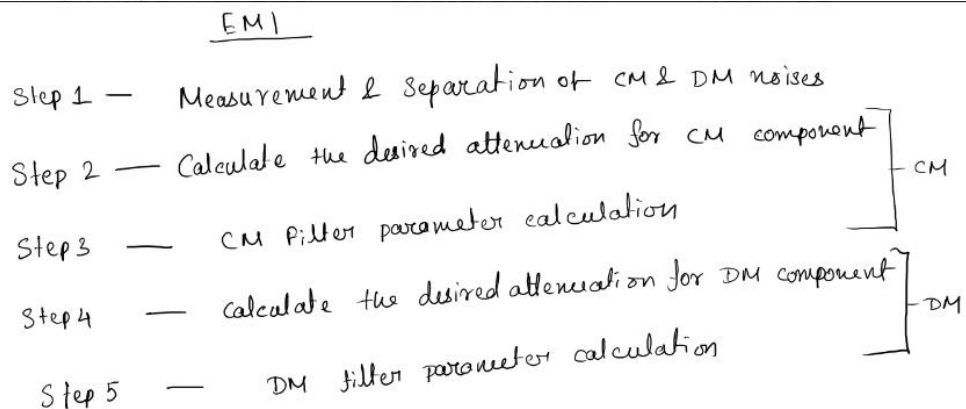 EMI
Step 1 — Measurement & Separation of CM & DM noises
Step 2 — Calculate the desired attenuation for CM component
CM
Step 3 — CM Filter parameter calculation
Step 4 — Calculate the desired attenuation for DM component
DM
Step 5 — DM filter parameter calculation